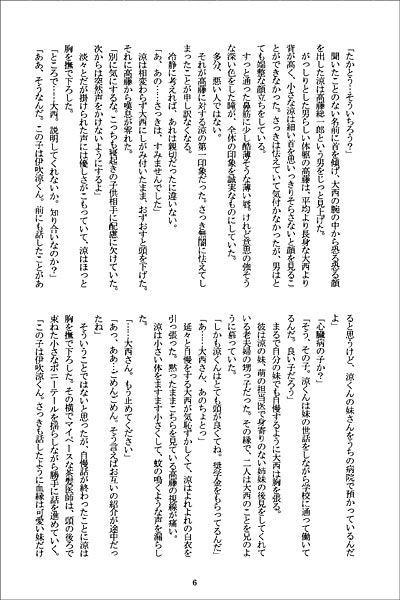 「たかとう…そういちろう？」
聞いたことのない名前に首を傾げ、大西の腕の中から恐る恐る顔
を出した涼は高藤総一郎という男をじっと見上げた。
がっしりとした男らしい体躯の高藤は、平均より長身な大西より
背が高く、小さな涼は細い首を思いっきりそらさないと顔を見るこ
とができなかった。さっきは怯えていて気付かなかったが、男はと
ても端整な顔立ちをしている。
すっと通った鼻筋に少し酷薄そうな薄い唇。けれど意思の強そう
な深い色をした瞳が、全体の印象を誠実なものにしていた。
多分、悪い人ではない。
それが高藤に対する涼の第一印象だった。さっき無闇に怯えてし
まったことが申し訳なくなる。
冷静に考えれば、あれは親切だったに違いない。
「あ、あの……さっきは、すみませんでした」
涼は相変わらず大西にしがみいたまま、おずおずと頭を下げた。
それに高藤から嘆息が寄る。
「別に気にするな。こっちも寝起きの子供相手に配慮に欠けていた。
次からは突然声をかけないようにするよ」
淡々とだが掛けられた声には優しさがこもっていて、涼はほっと
胸を撫で下ろした。
「ところで……大西。説明してくれないか。知り合いなのか？」
「ああ、そうなんだ。この子は伊吹涼くん。前にも話したことがあ
ると思うけど、涼くんの妹さんをうちの病院で預かっているんだ
よ」
「心臓病の子か？」
「そう、その子。涼くんは妹の世話をしながら学校に通って働いて
るんだ。良い子だろう」
まるで自分の妹でも自慢するように大西は胸を張る。
彼は涼の妹、萌の担当医で身寄りのない姉妹の後見をしてくれて
いる老夫婦の甥っ子だった。その縁で、二人は大西のことを兄のよ
うに慕っていた。
「しかも涼くんはとても頭が良くてね。奨学金をもらってるんだ」
「あ……大西さん、あのちょっ」
延々と自慢をする大西が気恥ずかしくて、涼はよれよれの白衣を
引っ張った。黙ったままこちらを見ている高藤の視線が痛い。
涼は小さい体をますます小さくして、蚊の鳴くような声を漏らし
た。
「……大西さん、もう止めてください」
「あっ、ああ…ごめんごめん。そう言えばお互いの紹介が途中だっ
たね」
そういうことではないと思ったが、自慢話が終わったことに涼は
胸を撫で下ろした。その横でマイペースな茶髪医師は、頭の後ろで
束ねた小さなポニーテールを揺らしながら勝手に話を進めていく。
「この子は伊吹涼くん。さっきも話したように血縁は可愛い妹だけ
6